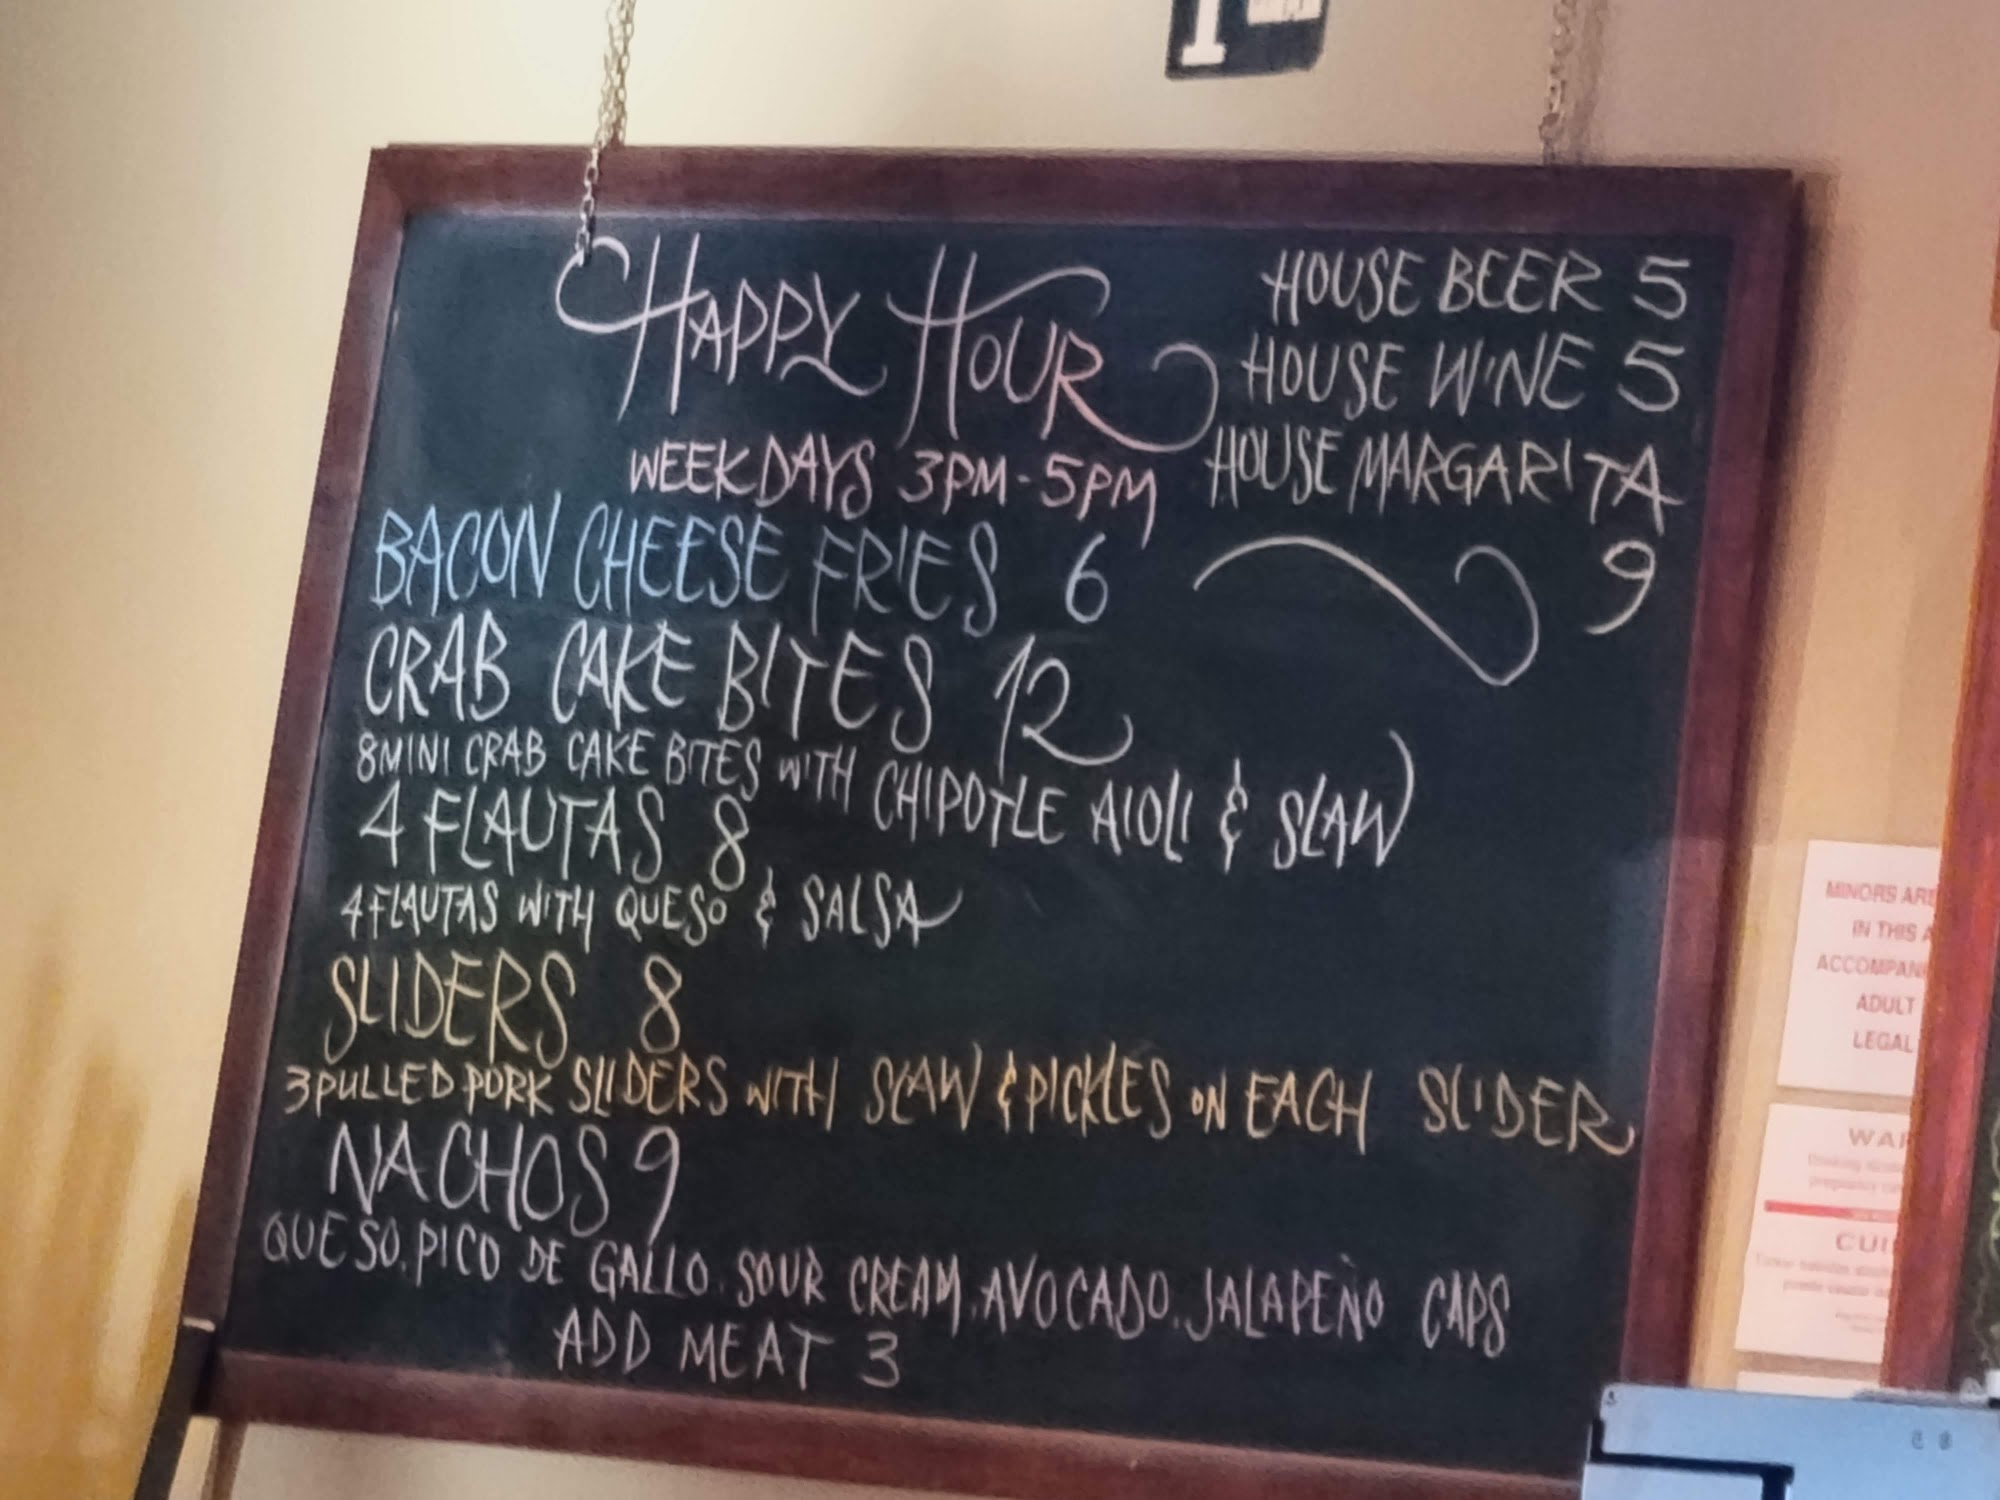 HAPPY HOUR
WEEKDAYS 3PM-5PM
HOUSE BEER 5
HOUSE WINE 5
HOUSE MARGARITA
9
BACON CHEESE FRIES 6
CRAB CAKE BITES 12
8 MINI CRAB CAKE BITES WITH CHIPOTLE AIOLI & SLAW
4 FLAUTAS 8
4 FLAUTAS WITH QUESO & SALSA
SLIDERS 8
3 PULLED PORK SLIDERS WITH SLAW & PICKLES ON EACH SLIDER
NACHOS 9
QUESO. PICO DE GALLO. SOUR CREAM. AVOCADO. JALAPEÑO CAPS
ADD MEAT 3
MINORS ARE
IN THIS
ADULT
LEGAL